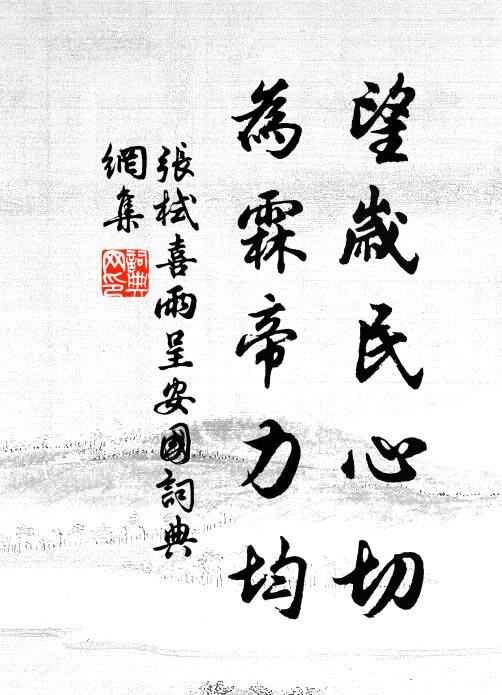 望歲民心切
為霖帝力均
張栻喜雨呈安國詞典
網集
詞典
网印